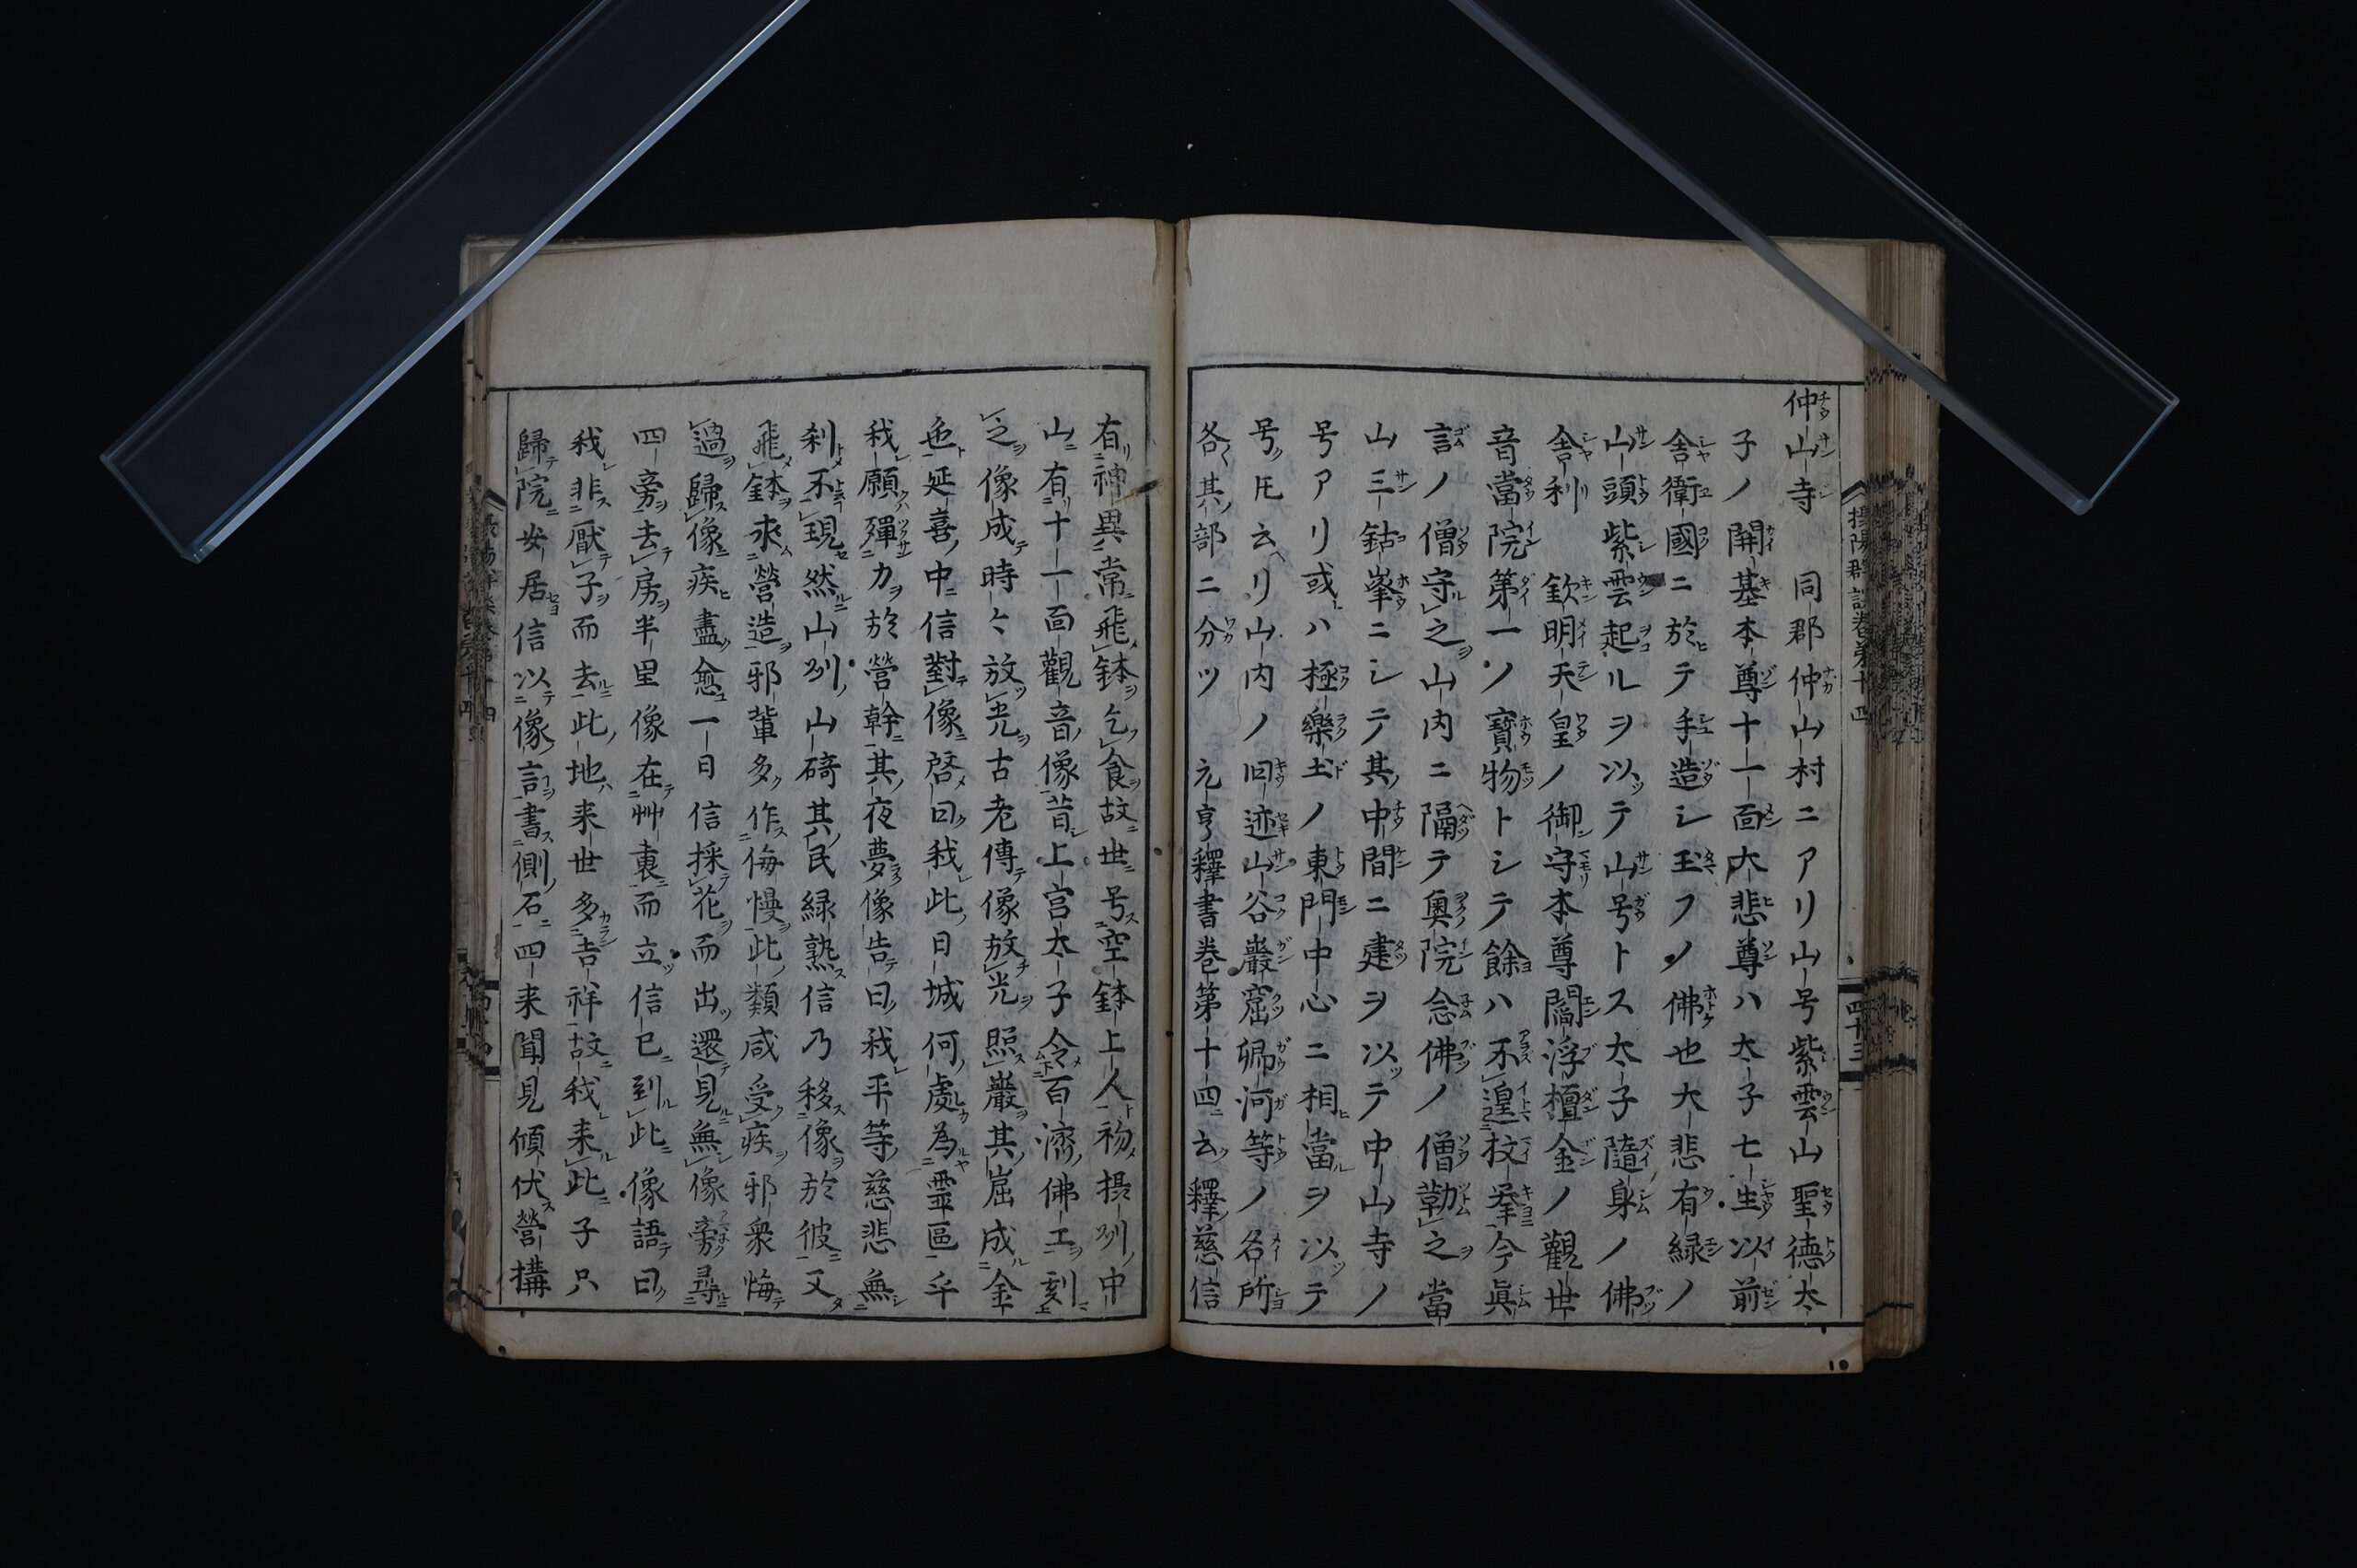 仲山寺 同郡仲山村ニアリ山号紫雲山聖徳太
子ノ開基本尊十一面大悲尊ハ太子七生以前
舎衛國ニ於テ手造シ玉フノ佛也大悲有縁ノ
山頭紫雲起ルヲ以テ山号トス太子隨身ノ佛
舎利 欽明天皇ノ御守本尊閻浮檀金ノ觀世
音當院第一ノ寳物トシテ餘ハ不遑枚挙今眞
言ノ僧守之山内ニ隔テ奥院念佛ノ僧勤之當
山三鈷峯ニシテ其中間ニ建ヲ以テ中山寺ノ
号アリ或ハ極樂土ノ東門中心ニ相當ヲ以テ
号ノ𪜈云リ山内ノ旧迹山谷巖窟 河等ノ名所
各其部ニ分ツ 元亨釋書卷第十四云釋慈信
有神異常飛鉢乞食故世号空鉢上人初摂刕中
山有十一面觀音像昔上宮太子令百濟佛工刻
之像成時〻放光古老傳像放光照巖其崛成金
色延喜中信對像啓曰我此日城何處為霊區乎
我願殫力於營幹其夜夢像告曰我平等慈悲無
刹不現然山刕山碕其民緑熟信乃移像於彼又
飛鉢求營造邪輩多作侮慢此類咸受疾邪衆悔
過歸像疾盡愈一日信採花而出還見無像旁尋
四旁去房半里像在艸裏而立信已到此像語曰
我非厭子而去此地来世多吉祥故我来此子只
歸院安居信以像言書側石四来聞見傾伏營搆
摂陽群談巻第十四
四十三